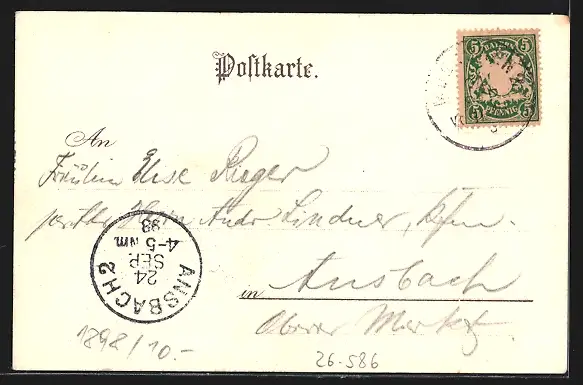 Postkarte.
BAYERN
5 5
5 PFENNIG 5
An
Fräulein Elise Rieger
Herrn Andr. Lindner, Kfm.
in Ansbach
Oberer Markt
ANSBACH 2
24
SEP
4-5 Nm.
98
1898/10.-
26-586